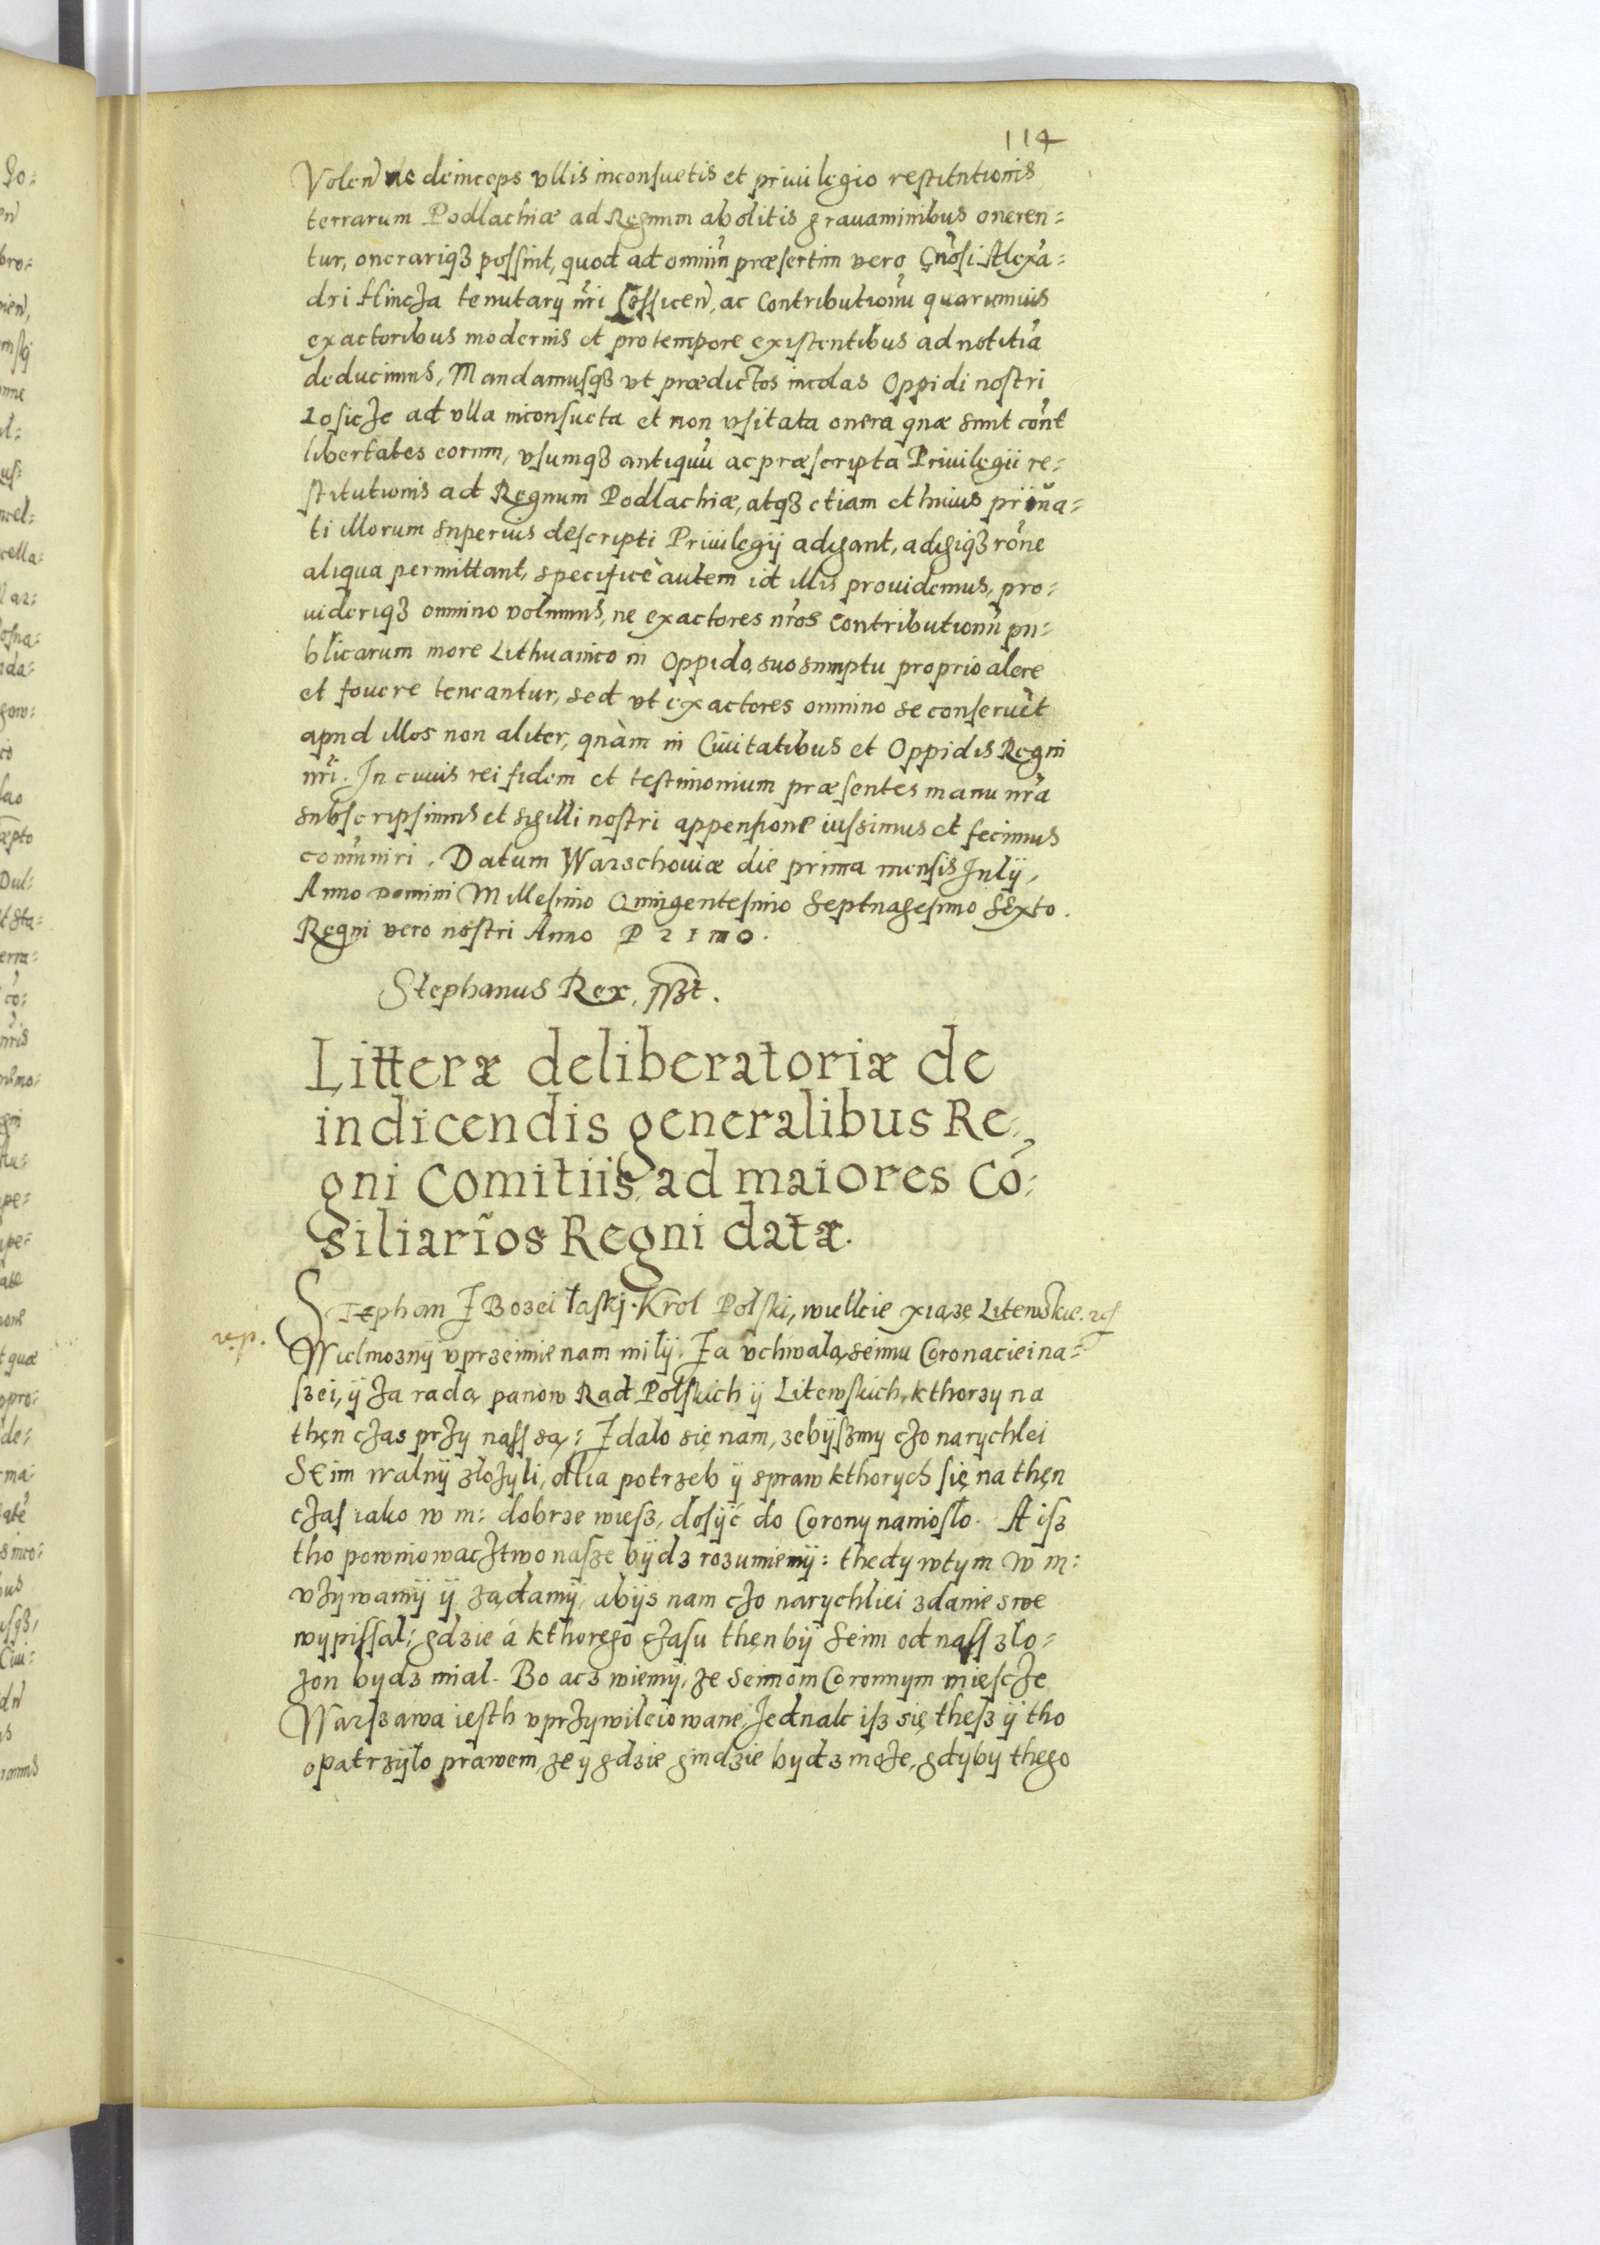 114
Volen̄ ne deinceps vllis inconsuetis et priuilegio restitutionis
terrarum Podlachiæ ad Regnum abolitis grauaminibus oneren=
tur, onerariq3 possint, quod ad omniũ præsertim vero Gñosi Alexã=
dri Hincza tenutarÿ nr̃i Losicen̄, ac Contributionũ quarumuis
exactoribus modernis et pro tempore existentibus ad notitiã
deducimus, Mandamusq3 vt prædictos incolas Oppidi nostri
Losicze ad vlla inconsueta et non vsitata onera quæ sunt cont̃
libertates eorum, vsumq3 antiquũ ac præscripta Priuilegii re=
stitutionis ad Regnum Podlachiæ, atq3 etiam et huius priua=
ti illorum superius descripti Priuilegÿ adigant, adigiq3 rõne
aliqua permittant, specificè autem id illis prouidemus, pro=
uideriq3 omnino volumus, ne exactores nr̃os Contributionũ pu=
blicarum more Lithuanico in Oppido, suo sumptu proprio alere
et fouere teneantur, sed vt exactores omnino se conseruẽt
apud illos non aliter, quàm in Ciuitatibus et Oppidis Regni
nr̃i. In cuius rei fidem et testimonium præsentes manu nr̃a
subscripsimus et sigilli nostri appensione iussimus et fecimus
com̃uniri. Datum Warschouiæ die prima mensis Julÿ,
Anno Domini Millesimo Quingentesimo Septuagesimo Sexto.
Regni vero nostri Anno Primo.
Stephanus Rex, sszt.
Litteræ deliberatoriæ de
indicendis generalibus Re=
gni Comitiis, ad maiores Cõ=
siliarios Regni datæ.
Stephan Z Bozei łaski Krol Polski, wielkie xiązę Litewskie. etc
v.p.
Wielmoznÿ vprzeimie nam milÿ. Za vchwalą seimu Coronaciei na=
szei, ÿ za radą panow Rad Polskich ÿ Litewskich, kthorzy na
thęn czas przy nass są; Zdalo się nam, zebÿszmy czo narychlei
Seim walnÿ złozyli, dlia potrzeb ÿ spraw kthorych się na thęn
czas iako w m: dobrze wiesz, dosÿć do Corony naniosło. A isz
tho powinowacztwo nasze bÿdz rozumiemÿ: thedy wtym w m:
vzywamÿ ÿ ządamÿ, abÿs nam czo narychliei zdanie swe
wypissal; gdzie á kthorego czasu thęn bÿ Seim od nass zlo=
zon bydz mial. Bo acz wiemÿ, ze seimom Coronnym miescze
Warszawa iesth vprzywileiowane, Jednak isz się thesz ÿ tho
opatrzÿlo prawem, ze y gdzie gindzie bydz moze, gdyby thego